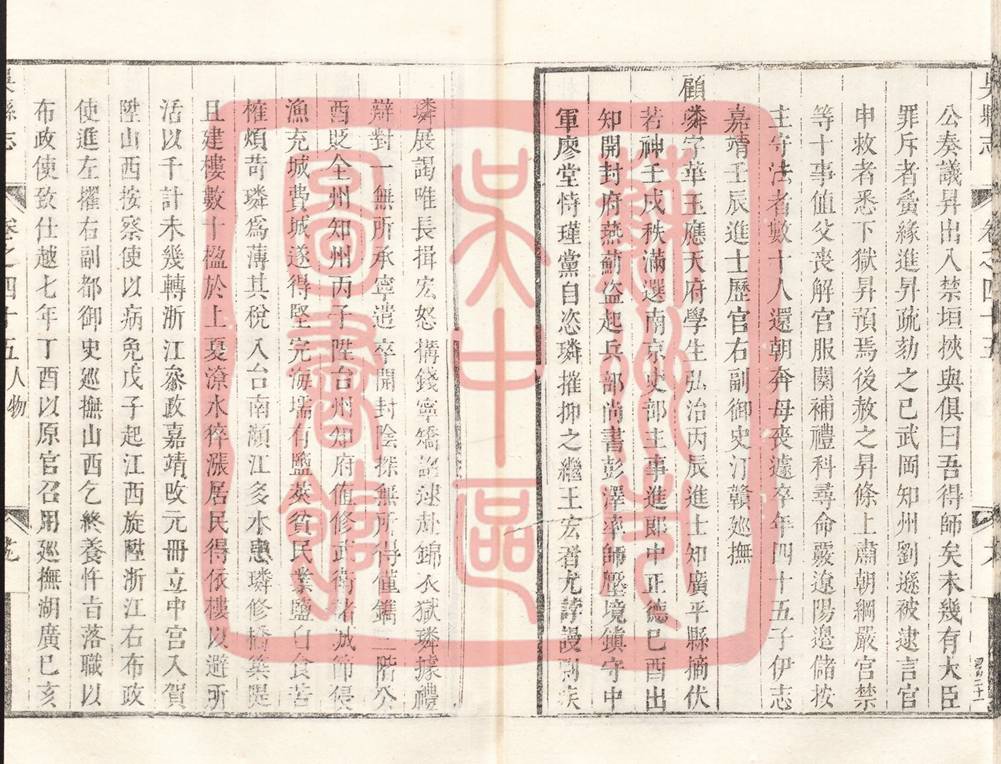 吳縣志
卷之四十五
公奏議昇出入禁垣挾與俱曰吾得師矣未幾有大臣
罪斥者夤緣進昇疏劾之已武岡知州劉遜被逮言官
申救者悉下獄昇預焉後赦之昇條上肅朝綱嚴宮禁
等十事值父喪解官服闋補禮科尋命覈遼陽邊儲按
主守法者數十人還朝奔母喪遽卒年四十五子伊志
嘉靖壬辰進士歷官右副御史汀贛巡撫
顧璘字華玉應天府學生弘治丙辰進士知廣平縣摘伏
若神壬戌秩滿選南京吏部主事進郎中正德己酉出
知開封府燕薊盜起兵部尚書彭澤率師壓境鎮守中
軍廖堂恃瑾黨自恣璘摧抑之繼王宏者尤謗謾剛疾
璘展謁唯長揖宏怒搆錢寧矯詔逮赴錦衣獄璘據禮
辯對一無所承寧遣卒開封陰採無所得僅鐫二階公
酉貶全州知州丙子陞台州知府値修武衛諸城節侵
漁充城費城遂得堅完海壖有鹽莢貧民業鹽自食苦
榷煩苛璘為薄其稅入台南瀕江多水患璘修橋築隄
且建樓數十楹於上夏潦水猝漲居民得依樓以避所
活以千計未幾轉浙江參政嘉靖改元冊立中宮入賀
陞山西按察使以病免戊子起江西旋陞浙江右布政
使進左擢右副都御史巡撫山西乞終養忤旨落職以
布政使致仕越七年丁酉以原官召用巡撫湖廣己亥
吳縣志
卷之四十五 人物
蘇州市
吳中區
圖書館